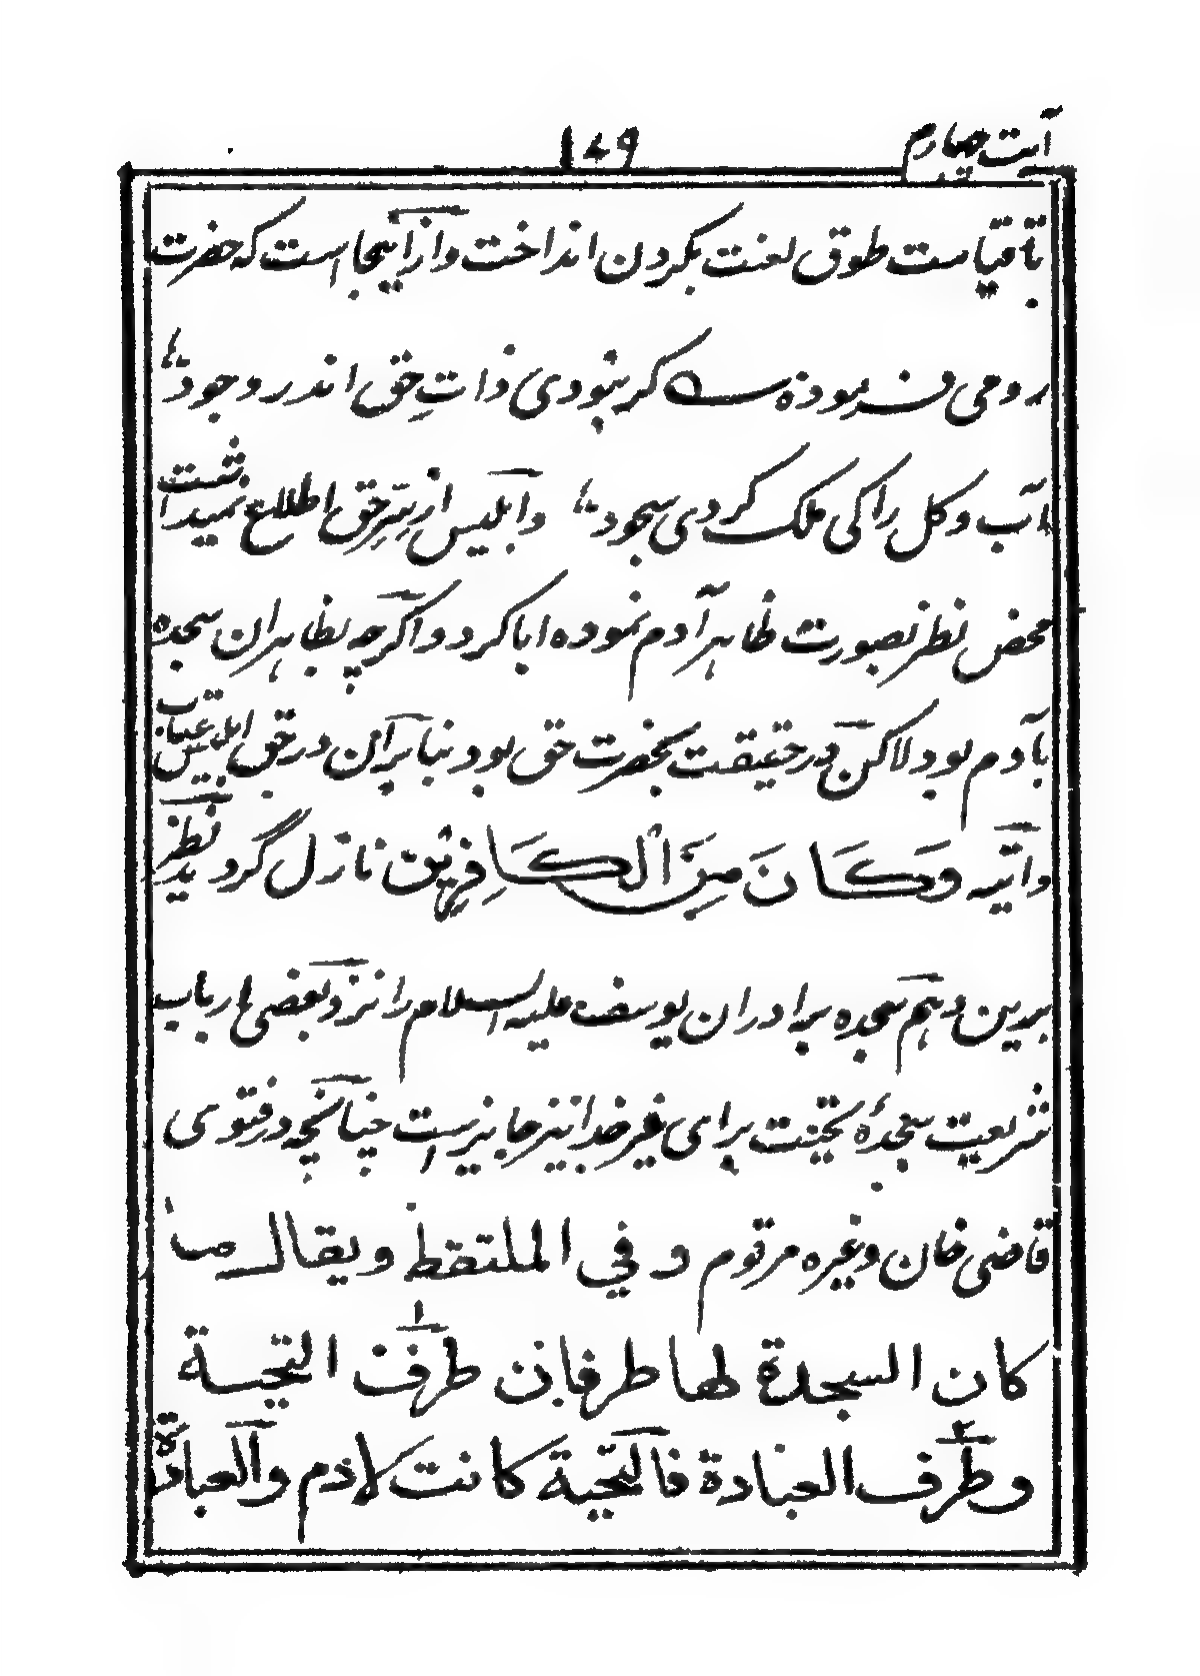 آیت چهارم
۱۷۹
تا قیامت طوق لعنت بگردن انداخت و ازاینجا است که حضرت
رومی فرموده گر نبودی ذاتِ حق اندر وجود
آب و گل را کی ملک کردی سجود و ابلیس از سِرِّ حق اطلاع نمیداشت
محض نظر بصورت ظاهر آدم نموده ابا کرد و اگرچه بظاهر آن سجده
بآدم بود لاکن در حقیقت بحضرت حق بود بنابرین در حق ابلیس عتاب
و آیه وَكَانَ مِنَ الْكَافِرِيْنَ نازل گردید نظر
برین وهم سجده برادران یوسف علیه السلام را نزد بعضی ارباب
شریعت سجدهٔ تحیّت برای غیر خدا نیز جایز است چنانچه در فتوی
قاضی خان وغیره مرقوم و في الملتقط ويقال ما
كان السجدة لها طرفان طرف التحية
وطرف العبادة فالتحية كانت لادم والعبادة